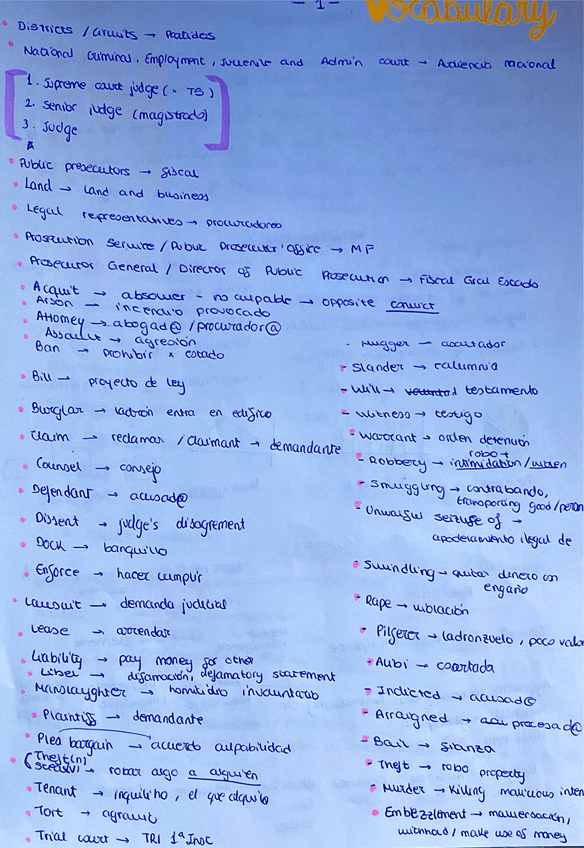 - 1 -
Vocabulary
Districts / Circuits → Partidos
National Criminal, Employment, Juvenile and Admin court → Audiencia nacional
1. Supreme court judge (= TS)
2. Senior judge (magistrado)
3. Judge
Public prosecutors → fiscal
Land → land and business
Legal representatives → procuradores
Prosecution Service / Public Prosecutor' office → MF
Prosecutor General / Director of Public Prosecution → Fiscal Gral Estado
Acquit → absolver - no culpable → opposite convict
Arson → incendio provocado
Attorney → abogad@ / procurador@
Assault → agresión
Ban → prohibir x estado
Bill → proyecto de ley
Burglar → ladrón entra en edificio
Claim → reclamar / Claimant → demandante
Counsel → consejo
Defendant → acusad@
Dissent → judge's disagrement
Dock → banquillo
Enforce → hacer cumplir
Lawsuit → demanda judicial
Lease → arrendar
Liability → pay money for other
Libel → difamación, defamatory statement
Manslaughter → homicidio involuntario
Plaintiff → demandante
Plea bargain → acuerdo culpabilidad
(Theft(n)
steal(v) → robar algo a alguien
Tenant → inquilino, el que alquila
Tort → agravio
Trial court → TRI 1ª Insc
- Mugger → asaltador
- Slander → calumnia
- Will → testamento
- Witness → testigo
- Warrant → orden detención
- Robbery → robo + intimidation / violen
- Smuggling → contrabando,
transporing good/person
- Unlawful seizure of →
apoderamiento ilegal de
- Swindling → quitar dinero con
engaño
- Rape → violación
- Pilferer → ladronzuelo, poco valor
- Alibi → coartada
- Indicted → acusad@
- Arraigned → procesad@
- Bail → fianza
- Theft → robo property
- Murder → Killing malicious inten
- Embezzlement → malversación,
withhold / make use of money